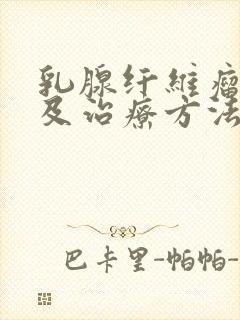 乳腺纤維瘤
及治療方法
巴卡里-帕帕-